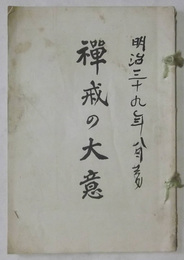 明治三十九年八月
禪戒の大意